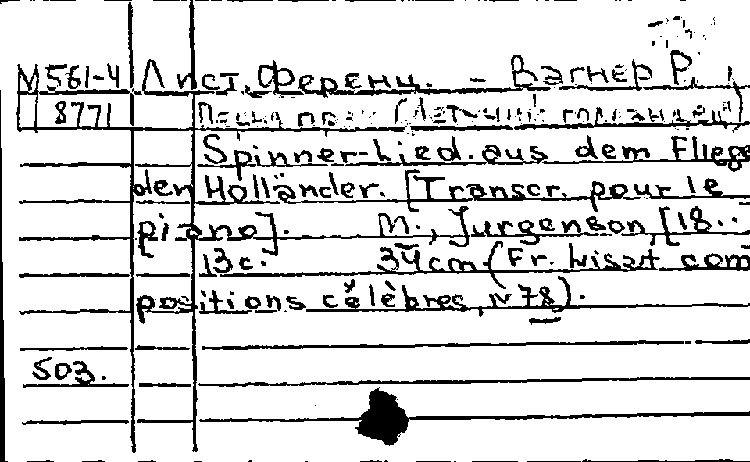 М561-4 Лист, Ференц. - Вагнер Р.
8771 Песня прях (Летучий голландец)
Spinner-Lied. aus dem Fliege
den Holländer. [Transcr. pour le
piano]. М., Jurgenson, [18..
13 с. 34 cm (Fr. Liszt com
positions célèbres, N 78).
503.